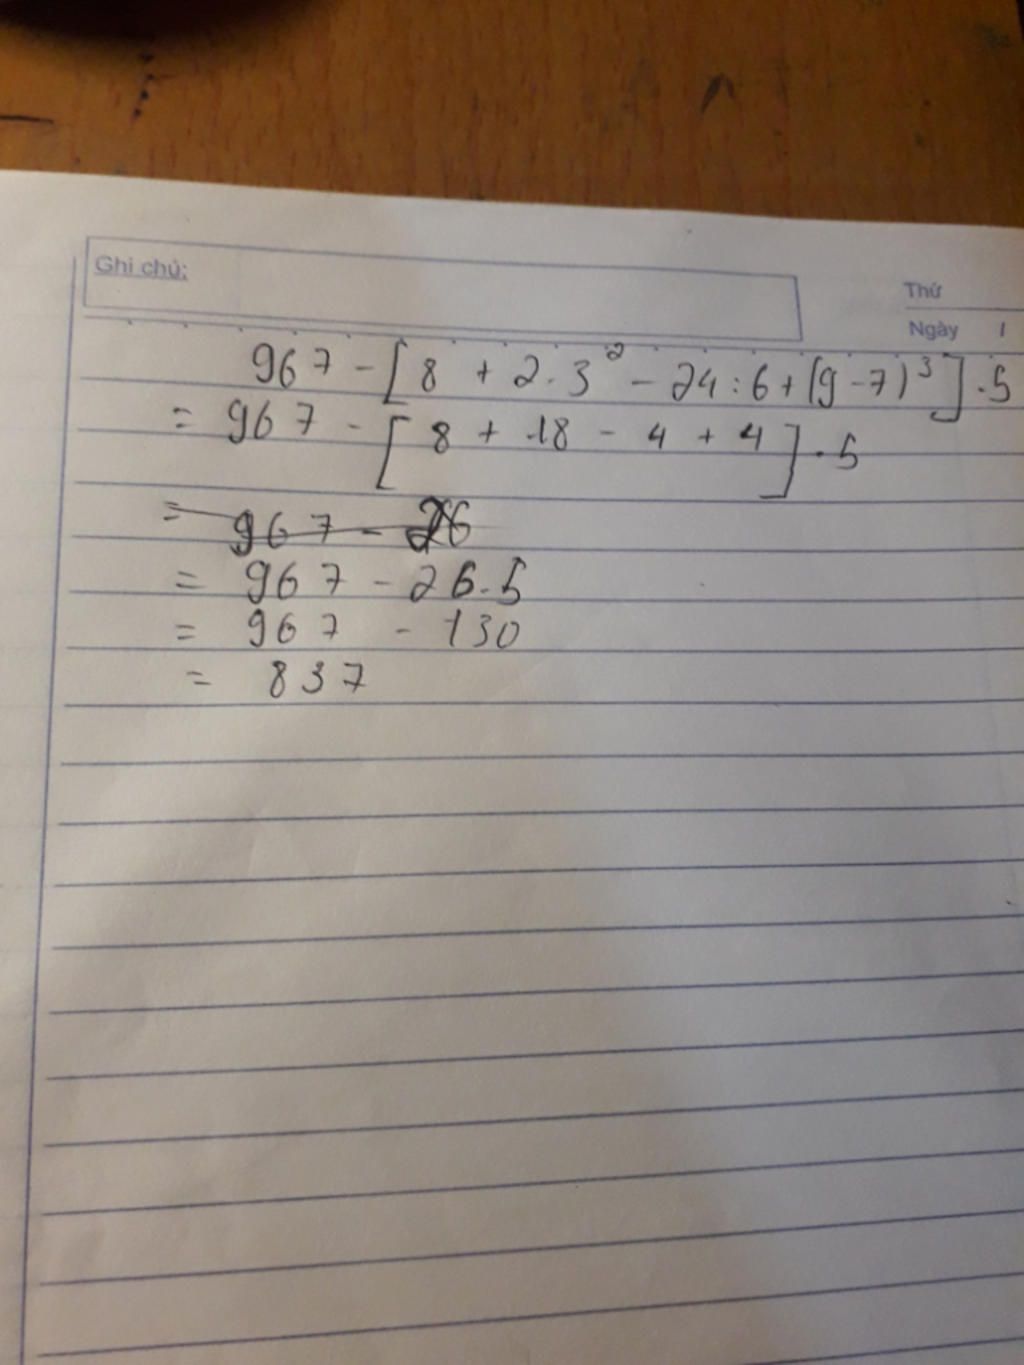 Ghi chú:
Thứ
Ngày /
967 - [8 + 2.3² - 24:6 + (9-7)³].5
= 967 - [8 + 18 - 4 + 4].5
= 967 - 26
= 967 - 26.5
= 967 - 130
= 837